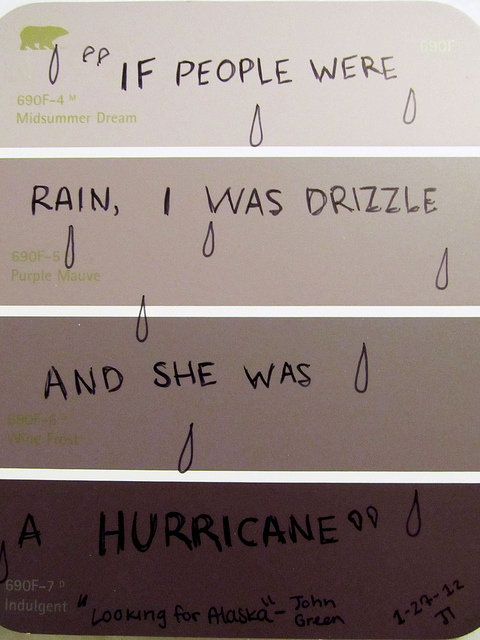 690F
"IF PEOPLE WERE
690F-4 M
Midsummer Dream
RAIN, I WAS DRIZZLE
690F-5
Purple Mauve
AND SHE WAS
690F-6 D
Wine Frost
A HURRICANE"
690F-7 D
Indulgent
"Looking for Alaska" - John
Green
1-27-12